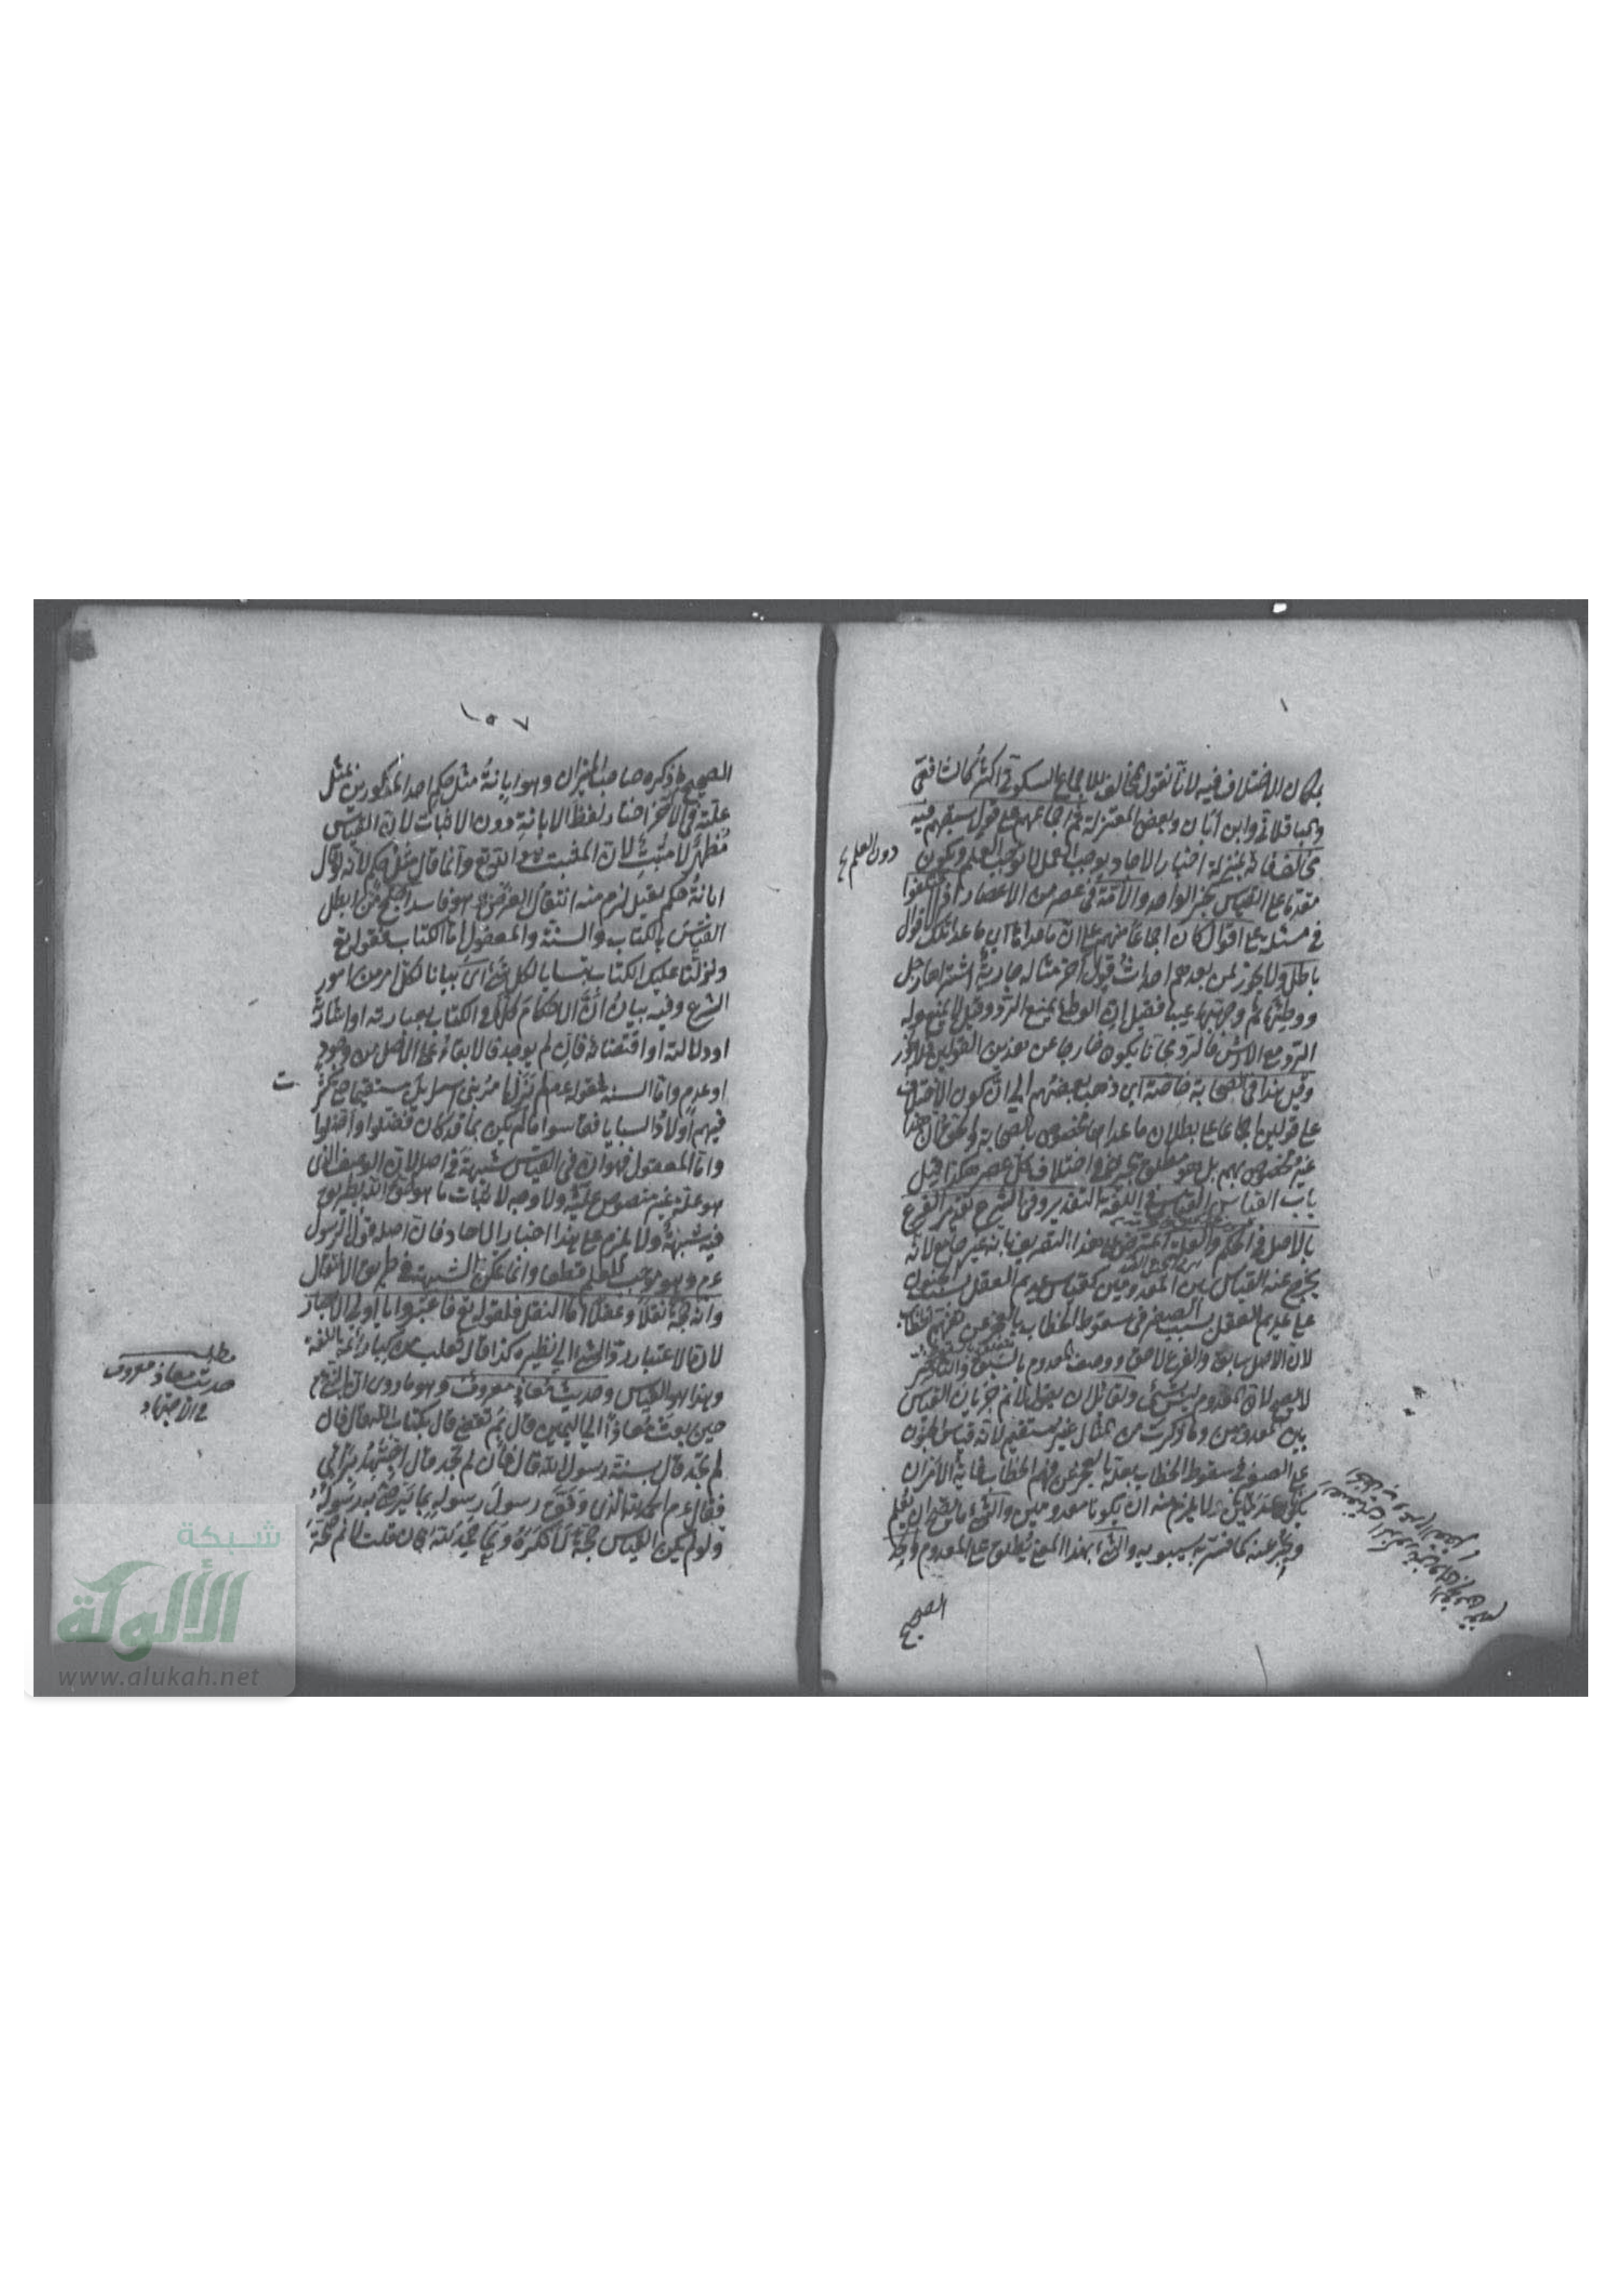 بمكان الاختلاف فيه لانا نقول المخالف للاجماع السكوتي اكثر كالشافعي
والباقلاني وابن أبان وبعض المعتزلة ثم اجماعهم على قول سبقهم فيه
مخالف فانه بمنزلة اخبار الاحاد يوجب العمل لا يوجب العلم ويكون
دون العلم
مقدما على القياس كخبر الواحد والأمة في عصر من الاعصار اذا اختلفوا
في مسئلة على اقوال كان اجماعا منهم على ان ما عداها اي ما عدا تلك الاقوال
باطل ولا يجوز لمن بعدهم احداث قول آخر مثاله جارية اشتراها رجل
ووطئها ثم وجد بها عيبا فقيل ان الوطئ يمنع الرد وقيل لا يمنع وله
الرد مع الارش فالرد مجانا يكون خارجا عن هذين القولين فلا يجوز
وقيل هذا في الصحابة خاصة اي ذهب بعضهم الى ان كون الاختلاف
على قولين اجماعا على بطلان ما عداهما مخصوص بالصحابة والحق ان هذا
غير مخصوص بهم بل هو مطلق يجري في اختلاف كل عصر هكذا قيل
باب القياس القياس في اللغة التقدير وفي الشرع تقدير الفرع
بالاصل في الحكم والعلة اعترض على هذا التعريف بانه غير جامع لانه
يخرج عنه القياس بين المعدومين كقياس عديم العقل بسبب الجنون
على عديم العقل بسبب الصغر في سقوط الخطاب بالعجز عن فهم الخطاب
لان الاصل سابق والفرع لاحق ووصف المعدوم بالسبق والتأخر
لا يصح لان المعدوم ليس بشئ ولقائل ان يقول لا نم جريان القياس
بين المعدومين وما ذكرت من المثال غير مستقيم لانه قياس الجنون
على الصغر في سقوط الخطاب بعلة العجز عن فهم الخطاب غاية الامر ان
يكونا عدميين ولا يلزم منه ان يكونا معدومين والشئ ما يصح ان يعلم
ويخبر عنه كما فسر به سيبويه والشئ بهذا المعنى يطلق على المعدوم والحد
الصحيح
١٥٧
الصحيح ما ذكره صاحب الميزان وهو ابانة مثل حكم احد المذكورين بمثل
علته في الآخر اختار لفظ الابانة دون الاثبات لان القياس
مظهر لا مثبت لان المثبت هو الله تع وانما قال مثل حكم لانه لو قال
ابانة حكم يقبل لزم منه انتقال العرض وهو فاسد احتج من ابطل
القياس بالكتاب والسنة والمعقول اما الكتاب فقوله تع
ونزلنا عليك الكتاب تبيانا لكل شئ اي بيانا لكل امر من امور
الشرع وفيه بيان أن الاحكام كلها في الكتاب بعبارته او اشارته
او دلالته او اقتضائه فان لم يوجد فالابقاء على الاصل من وجود
او عدم واما السنة فقوله عم لم يزل امر بني اسرائيل مستقيما حتى كثر
ت
فيهم اولاد السبايا فقاسوا ما لم يكن بما قد كان فضلوا واضلوا
واما المعقول فهو ان في القياس شبهة في اصله لان الوصف الذي
هو علة غير منصوص عليه ولا وجه لاثبات ما هو حق الله بطريق
فيه شبهة ولا يلزم على هذا اخبار الاحاد فان اصله قول الرسول
عم وهو موجب للعلم قطعا وانما تمكن الشبهة في طريق الانتقال
وانه حجة نقلا وعقلا اما النقل فلقوله تع فاعتبروا يا اولي الابصار
لان الاعتبار رد الشئ الى نظيره كذا قال ثعلب من كبار ائمة اللغة
وهذا هو القياس وحديث معاذ معروف وهو ما روى ان النبي عم
مطلب
حديث معاذ معروف
في الاجتهاد
حين بعث معاذا الى اليمن قال بم تقضي قال بكتاب الله قال فان
لم تجد قال بسنة رسول الله قال فان لم تجد قال اجتهد برأيي
فقال عم الحمد لله الذي وفق رسول رسوله بما يرضى به رسوله
ولو لم يكن القياس حجة لأنكره ولما حمد الله فان قلت لا نم صحة
شبكة
الألوكة
www.alukah.net